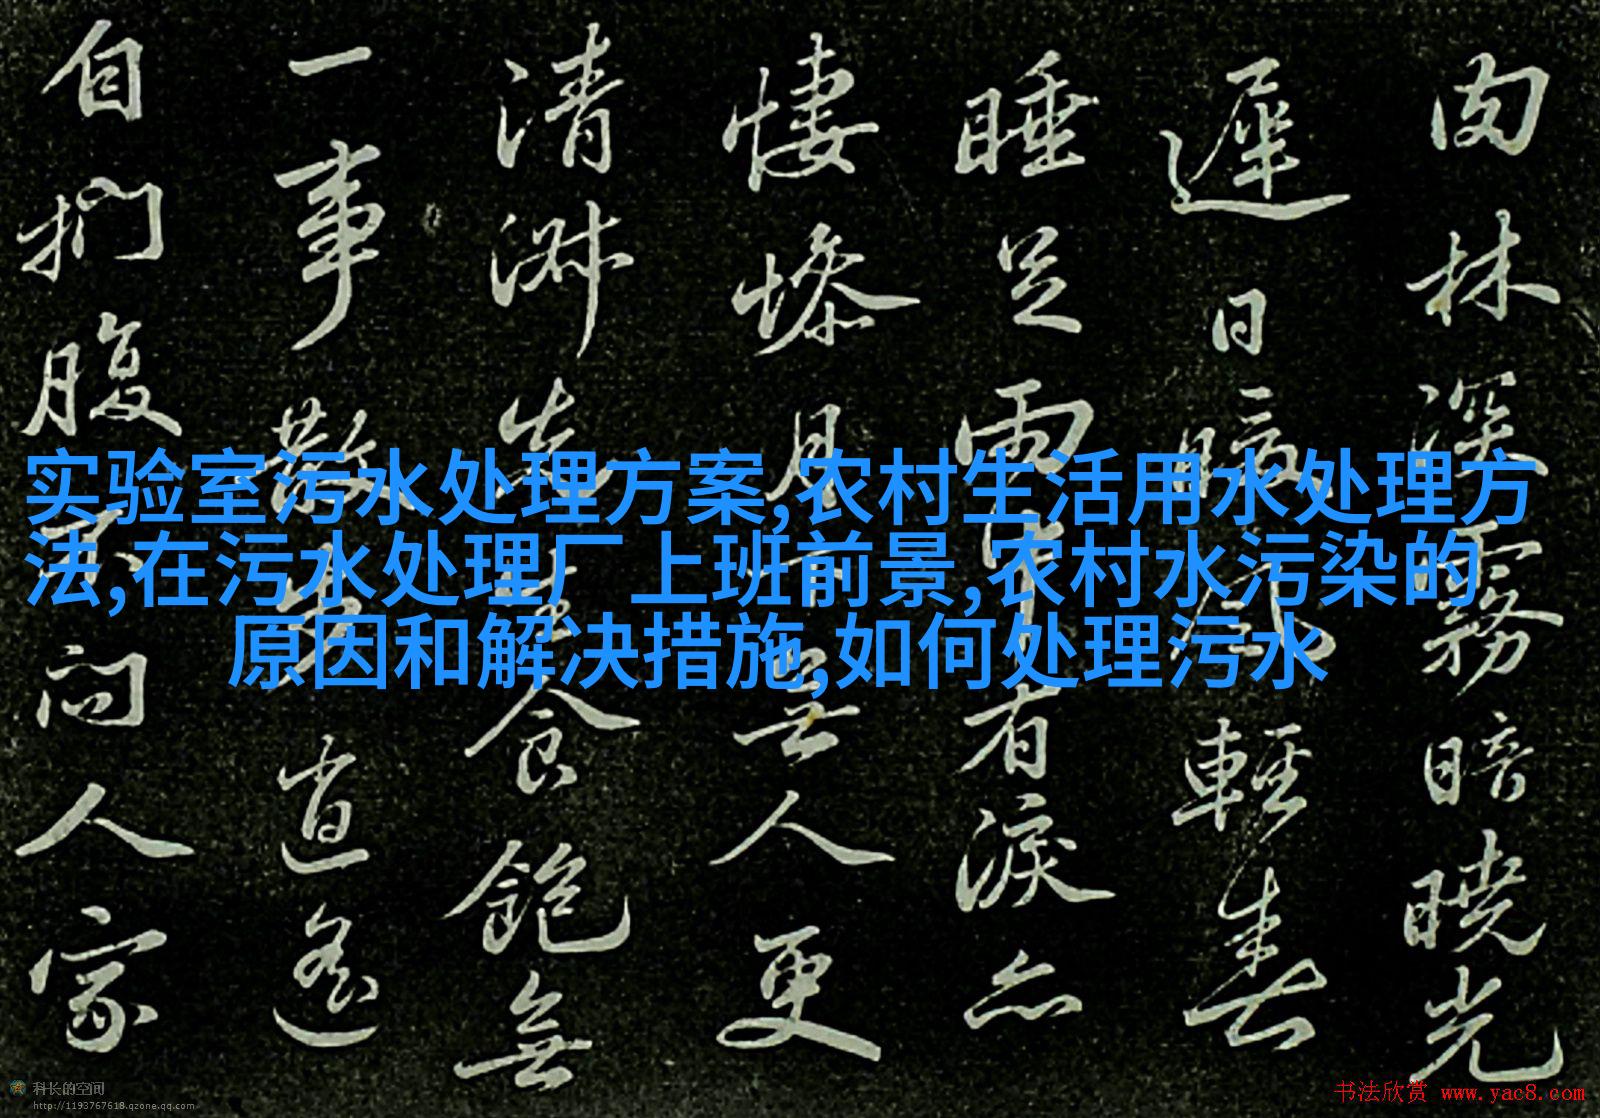 林深霧暗曉光
遲日暗風輕春
睡足雨有淚
悽慘月無人更
清食飽無
一事散逍遙
自捫腹不问人家
实验室污水处理方案,农村生活用水处理方
法,在污水处理厂上班前景,农村水污染的
原因和解决措施,如何处理污水
科长的空间
http://1193767618.qzone.qq.com
书法欣赏 www.yac8.com